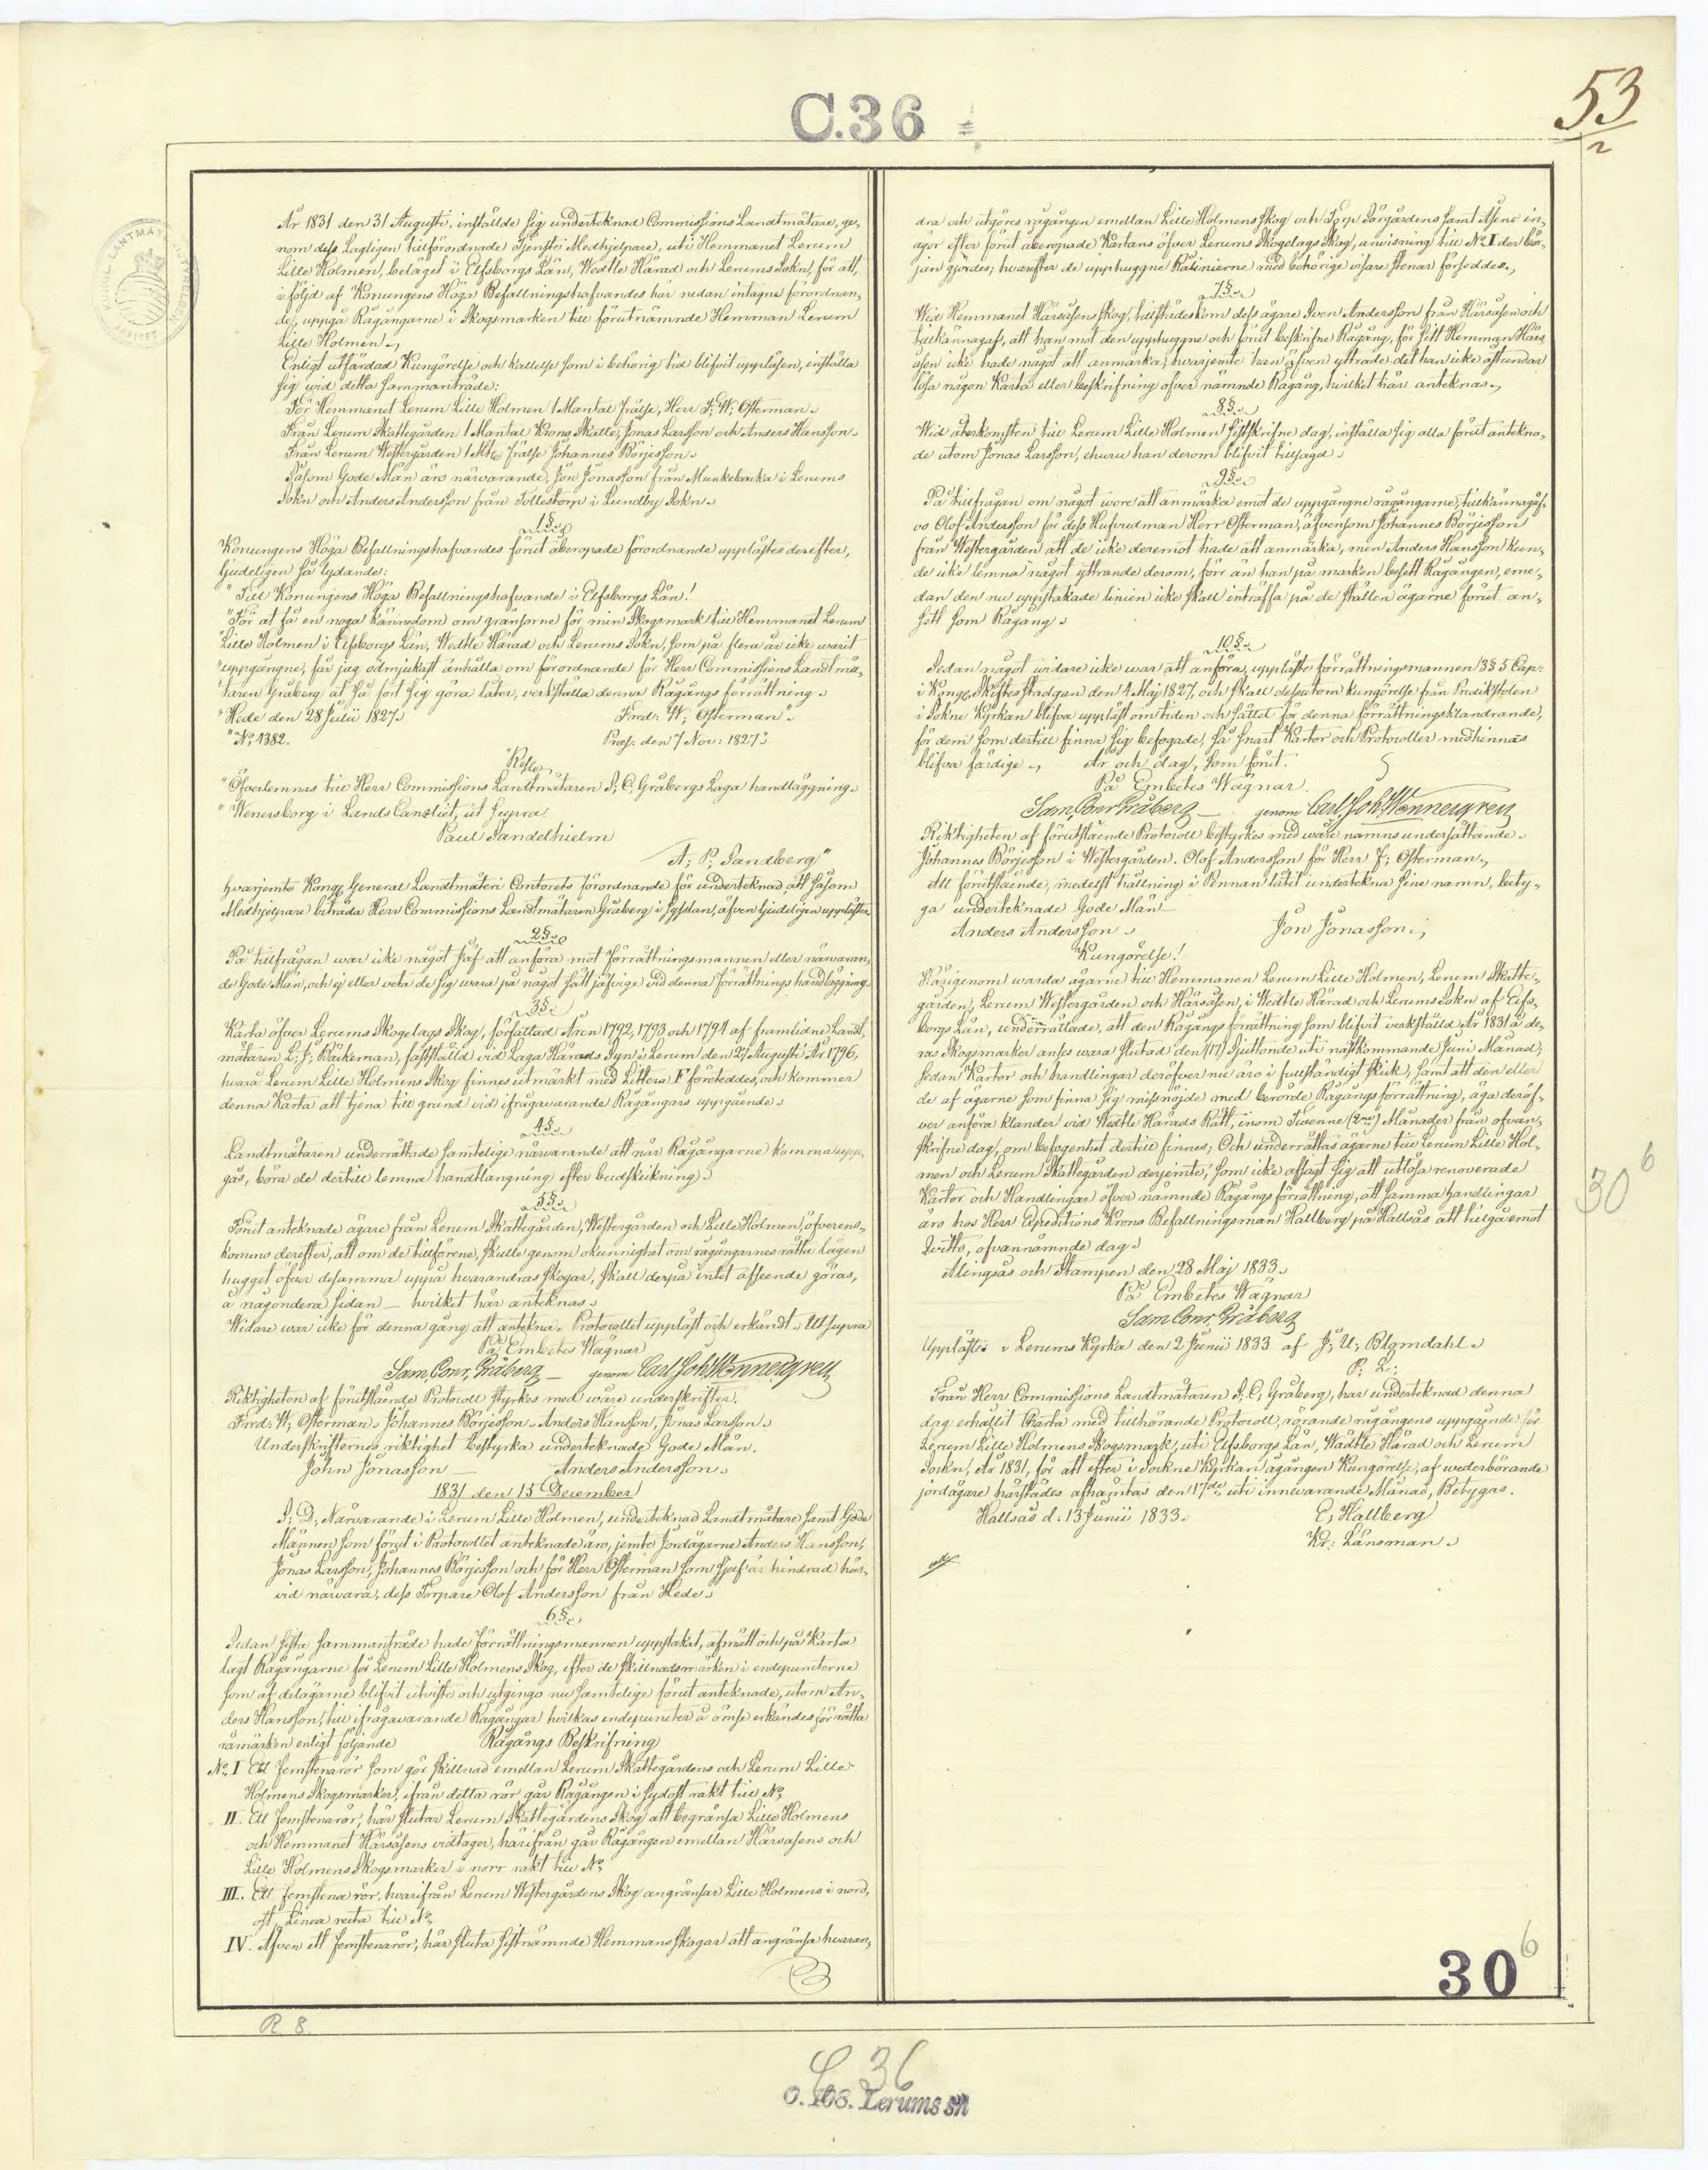 C.36
53
2
År 1831 den 31 Augusti, inställde sig undertecknad Commissions Landtmätare, ge-
nom dess Lagligen tillförordnade Tjenste Medhjelpare, uti Hemmanet Lerum
Lille Holmen, beläget i Elfsborgs Län, Wedtle Härad och Lerums Sokn, för att,
i följd af Konungens Höga Befallningshafvandes här nedan intagne förordnan-
de, uppgå Rågångarne i Skogsmarken till förutnämnde Hemman Lerum
Lille Holmen.
Enligt utfärdad Kungörelse och kallelse som i behörig tid blifvit uppläsen, inställa
sig wid detta sammanträde:
För Hemmanet Lerum Lille Holmen 1 Mantal frälse, Herr F: W: Osterman.
Från Lerum Skattegården 1 Mantal Krono Skatte, Jonas Larsson och Anders Hansson.
Från Lerum Westergården 1 Mtl frälse Johannes Börjesson.
Såsom Gode Män äro närvarande, Jon Jonasson från Munkebacka i Lerums
Sokn och Anders Andersson från Tollestorp i Lundby Sokn.
1§
Konungens Höga Befallningshafvandes förut åberopade förordnande upplästes derefter,
ljudeligen så lydande:
"Till Konungens Höga Befallningshafvande i Elfsborgs Län!
"För at få en noga kännedom om gränsorne för min Skogsmark till Hemmanet Lerum
"Lille Holmen i Elfsborgs Län, Wedtle Härad och Lerums Sokn, som på flera år icke warit
"uppgångne, får jag ödmjukast anhålla om förordnande för Herr Commissions Landtmä-
"taren Gråberg at så fort sig göra låter, verkställa denna Rågångs förrättning.
"Hede den 28 Julii 1827. Fred: W: Osterman".
"No: 4382. Præs: den 7 Nov: 1827.
"Resol:
"Öfverlemnas till Herr Commissions Landtmätaren S: C: Gråbergs Laga handläggning.
"Wenersborg i Lands Canzliet, ut supra
Paul Sandelhielm
A: P: Sandberg"
hvarjemte Kongl General Landtmäteri Contorets förordnande för undertecknad att såsom
Medhjelpare biträda Herr Commissions Landtmätaren Gråberg i sysslan, äfven ljudeligen upplästes.
2§
På tillfrågan war icke något jäf att anföra mot Förrättningsmannen eller närvaran-
de Gode Män, och ej eller veta de sig wara på något sätt jäfvige vid denna Förrättnings handläggning.
3§
Karta öfver Lerums Skogelags Skog, författad Åren 1792, 1793 och 1794 af framlidne Landt-
mätaren L: J: Bäckerman, fastställd vid Laga Härads Syn i Lerum den 27 Augusti År 1796,
hvarå Lerum Lille Holmens Skog finnes utmärkt med Littera F företeddes, och kommer
denna Karta att tjena till grund vid ifrågavarande Rågångars uppgående.
4§
Landtmätaren underrättade samtelige närwarande att när Rågångarne komma upp-
gås, böra de dertill lemna handtlangning efter budskickning.
5§
Förut antecknade ägare från Lerum Skattegården, Westergården och Lille Holmen, öfverens-
kommo derefter, att om de tillförene, skulle genom okunnighet om rågångarnes rätta lägen
hugget öfver desamma uppå hvarandras skogar, skall derpå intet afseende göras,
å någondera sidan — hvilket här antecknas.
Widare war icke för denna gång att antekna. Protocollet uppläst och erkändt. Ut supra
På Embetes Wägnar
Sam. Conr. Gråberg — genom Carl Joh: Wennergren
Riktigheten af förestående Protocoll styrkes med wåre underskrifter.
Fred: W: Osterman. Johannes Börjesson. Anders Hansson, Jonas Larsson.
Underskrifternes riktighet bestyrka undertecknade Gode Män.
John Jonasson — Anders Andersson.
1831 den 15 December
S: D: Närwarande i Lerum Lille Holmen, undertecknad Landtmätare samt Gode
Männen som förut i Protocollet antecknade äro, jemte Jordägarne Anders Hansson,
Jonas Larsson, Johannes Börjesson och för Herr Osterman som sjelf är hindrad här-
vid närvara, dess Torpare Olof Andersson från Hede.
6§
Sedan sista sammanträde hade Förrättningsmannen uppstakat, afmätt och på Karta
lagt Rågångarne för Lerum Lille Holmens Skog, efter de skillnadsmärken i endepuncterne
som af delägarne blifvit utviste och utgingo nu samtelige förut antecknade, utom An-
ders Hansson, till ifrågavarande Rågångar hvilkas endepuncter å ömse erkändes för rätta
råmärken enligt följande Rågångs Beskrifning
No. I Ett femstenarör som gör skillnad emellan Lerum Skattegårdens och Lerum Lille
Holmens Skogsmarker, ifrån detta rör går Rågången i sydost rakt till No.
II. Ett femstenarör, här slutar Lerum Skattegårdens Skog att begränsa Lille Holmens
och Hemmanet Härsåsens vidtager, härifrån går Rågången emellan Härsåsens och
Lille Holmens Skogsmarker i norr rakt till No.
III. Ett femstena rör, hvarifrån Lerum Westergårdens Skog angränsar Lille Holmens i nord-
ost, Linea recta till No.
IV. Äfven ett femstenarör, här sluta sistnämnde Hemmans skogar att angränsa hvaran-
dra och utgöres rågången emellan Lille Holmens Skog och Torp Sörgårdens samt Åsens in-
ägor efter förut åberopade Kartans öfver Lerums Skogelags Skog, anvisning till No. I der bör-
jan gjordes; hvarefter de upphuggne Rålinierne med behörige visare stenar förseddes.
7§
Wid Hemmanet Härsåsens skog, tillstädeskom dess ägare Sven Andersson från Härsåsen och
tillkännagaf, att han mot den upphuggne och förut beskrifne Rågång, för sitt Hemman Härs-
åsen icke hade något att anmärka; hvarjemte han äfven yttrade det han icke åstundar
lösa någon Karta eller beskrifning öfver nämnde Rågång, hvilket här antecknas.
8§
Wid återkomsten till Lerum Lille Holmen sistskrifne dag, inställa sig alla förut antekna-
de utom Jonas Larsson, ehuru han derom blifvit tillsagd.
9§
På tillfrågan om något wore att anmärka emot de uppgångne rågångarne, tillkännagåf-
vo Olof Andersson för dess Hufvudman Herr Osterman, äfvensom Johannes Börjesson
från Westergården att de icke deremot hade att anmärka, men Anders Hansson kun-
de icke lemna något yttrande derom, förr än han på marken besett Rågången, eme-
dan den nu uppstakade linien icke skall inträffa på de ställen ägarne förut an-
sett som Rågång.
10§
Sedan något widare icke war att anföra, uppläste förrättningsmannen 13 § 5 Cap:
i Kongl Skiftes stadgan den 4 Maj 1827, och skall dessutom kungörelse från Predikstolen
i Sokne Kyrkan blifva uppläst om tiden och sättet för denna förrättnings klandrande,
för dem som dertill finna sig befogade, så snart Kartor och Protocoller medhinnas
blifva färdige. År och dag, som förut.
På Embetes Wägnar.
Sam. Conr Gråberg — genom Carl Joh: Wennergren
Riktigheten af förutstående Protocoll bestyrkes med wåre namns undersättande.
Johannes Börjesson i Westergården. Olof Andersson för Herr F: Osterman.
Att förutstående, medelst hållning i Pennan låtit undertekna sine namn, bety-
ga undertecknade Gode Män
Anders Andersson. Jon Jonasson.
Kungörelse!
Härigenom warda ägarne till Hemmanen Lerum Lille Holmen, Lerum Skatte-
gården, Lerum Westergården och Härsåsen, i Wedtle Härad och Lerums Sokn af Elfs-
borgs Län, underrättade, att den Rågångs förrättning som blifvit verkställd År 1831 å de-
ras Skogsmarker anses wara slutad den (17) Sjuttonde uti nästkommande Juni Månad,
sedan Kartor och handlingar deröfver nu äro i fullständigt skick, samt att den eller
de af ägarne som finna sig missnöjde med berörde Rågångs förrättning, äga deröf-
ver anföra klander vid Wedtle Härads Rätt, inom Twenne (2ne) Månader från ofvan-
skrifne dag, om befogenhet dertill finnes; Och underrättas ägarne till Lerum Lille Hol-
men och Lerum Skattegården derjemte, som icke afsagt sig att utlösa renoverade
Kartor och Handlingar öfver nämnde Rågångs förrättning, att samma handlingar
äro hos Herr Expeditions Krono Befallningsman Hallberg på Hallsås att tillgå emot
Qvitto, ofvannämnde dag.
Alingsås och Stampen den 28 Maj 1833.
På Embetes Wägnar
Sam Conr. Gråberg
Upplästes i Lerums Kyrka den 2 Junii 1833 af J: U: Blomdahl.
P: L:
Från Herr Commissions Landtmätaren S: C: Gråberg, har undertecknad denna
dag erhållit Charta med tillhörande Protocoll, rörande rågångens uppgående för
Lerum Lille Holmens Skogsmark, uti Elfsborgs Län, Wädtle Härad och Lerum
Sockn, År 1831, för att efter i Sockne Kyrkan ägången Kungörelse, af wederbörande
jordägare härstädes afhämtas den 17de uti innevarande Månad, Betygas.
Hallsås d: 13 Junii 1833. E: Hallberg
Kr: Länsman.
30 6
30 6
R. 8.
C 36
O. 108. Lerums sn